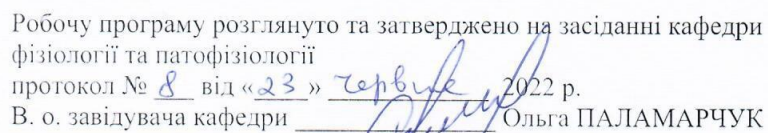 Робочу програму розглянуто та затверджено на засіданні кафедри
фізіології та патофізіології
протокол № 8 від «23» червня 2022 р.
В. о. завідувача кафедри Ольга ПАЛАМАРЧУК